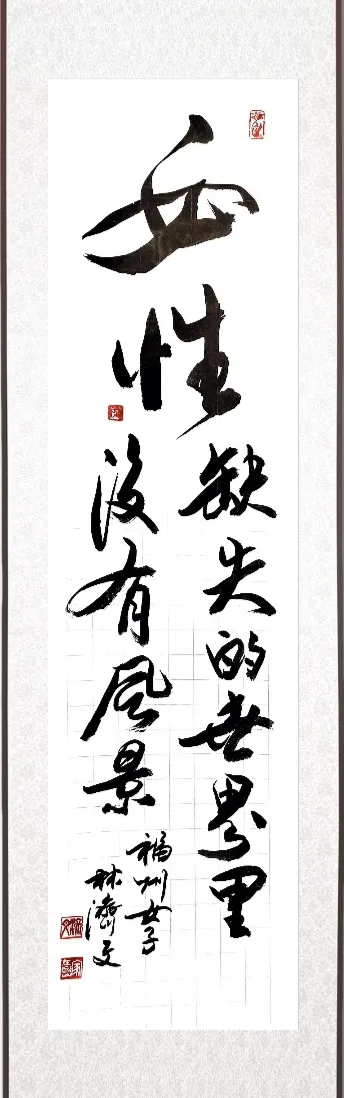 女性
缺失的世界里
没有風景
福州女子
林濟文